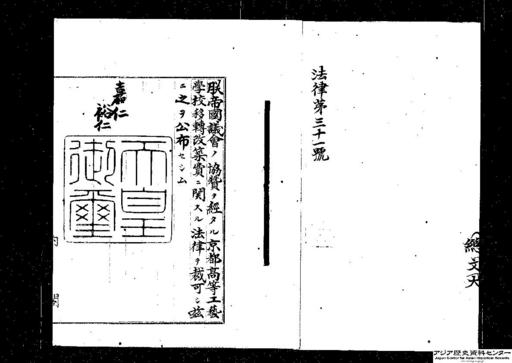 法律第三十一號
朕帝國議會ノ協贊ヲ經タル京都高等工藝
學校移轉改築費ニ関スル法律ヲ裁可シ茲
ニ之ヲ公布セシム
嘉仁
裕仁
天皇
御璽
内
閣
アジア歴史資料センター
Japan Center for Asian Historical Records